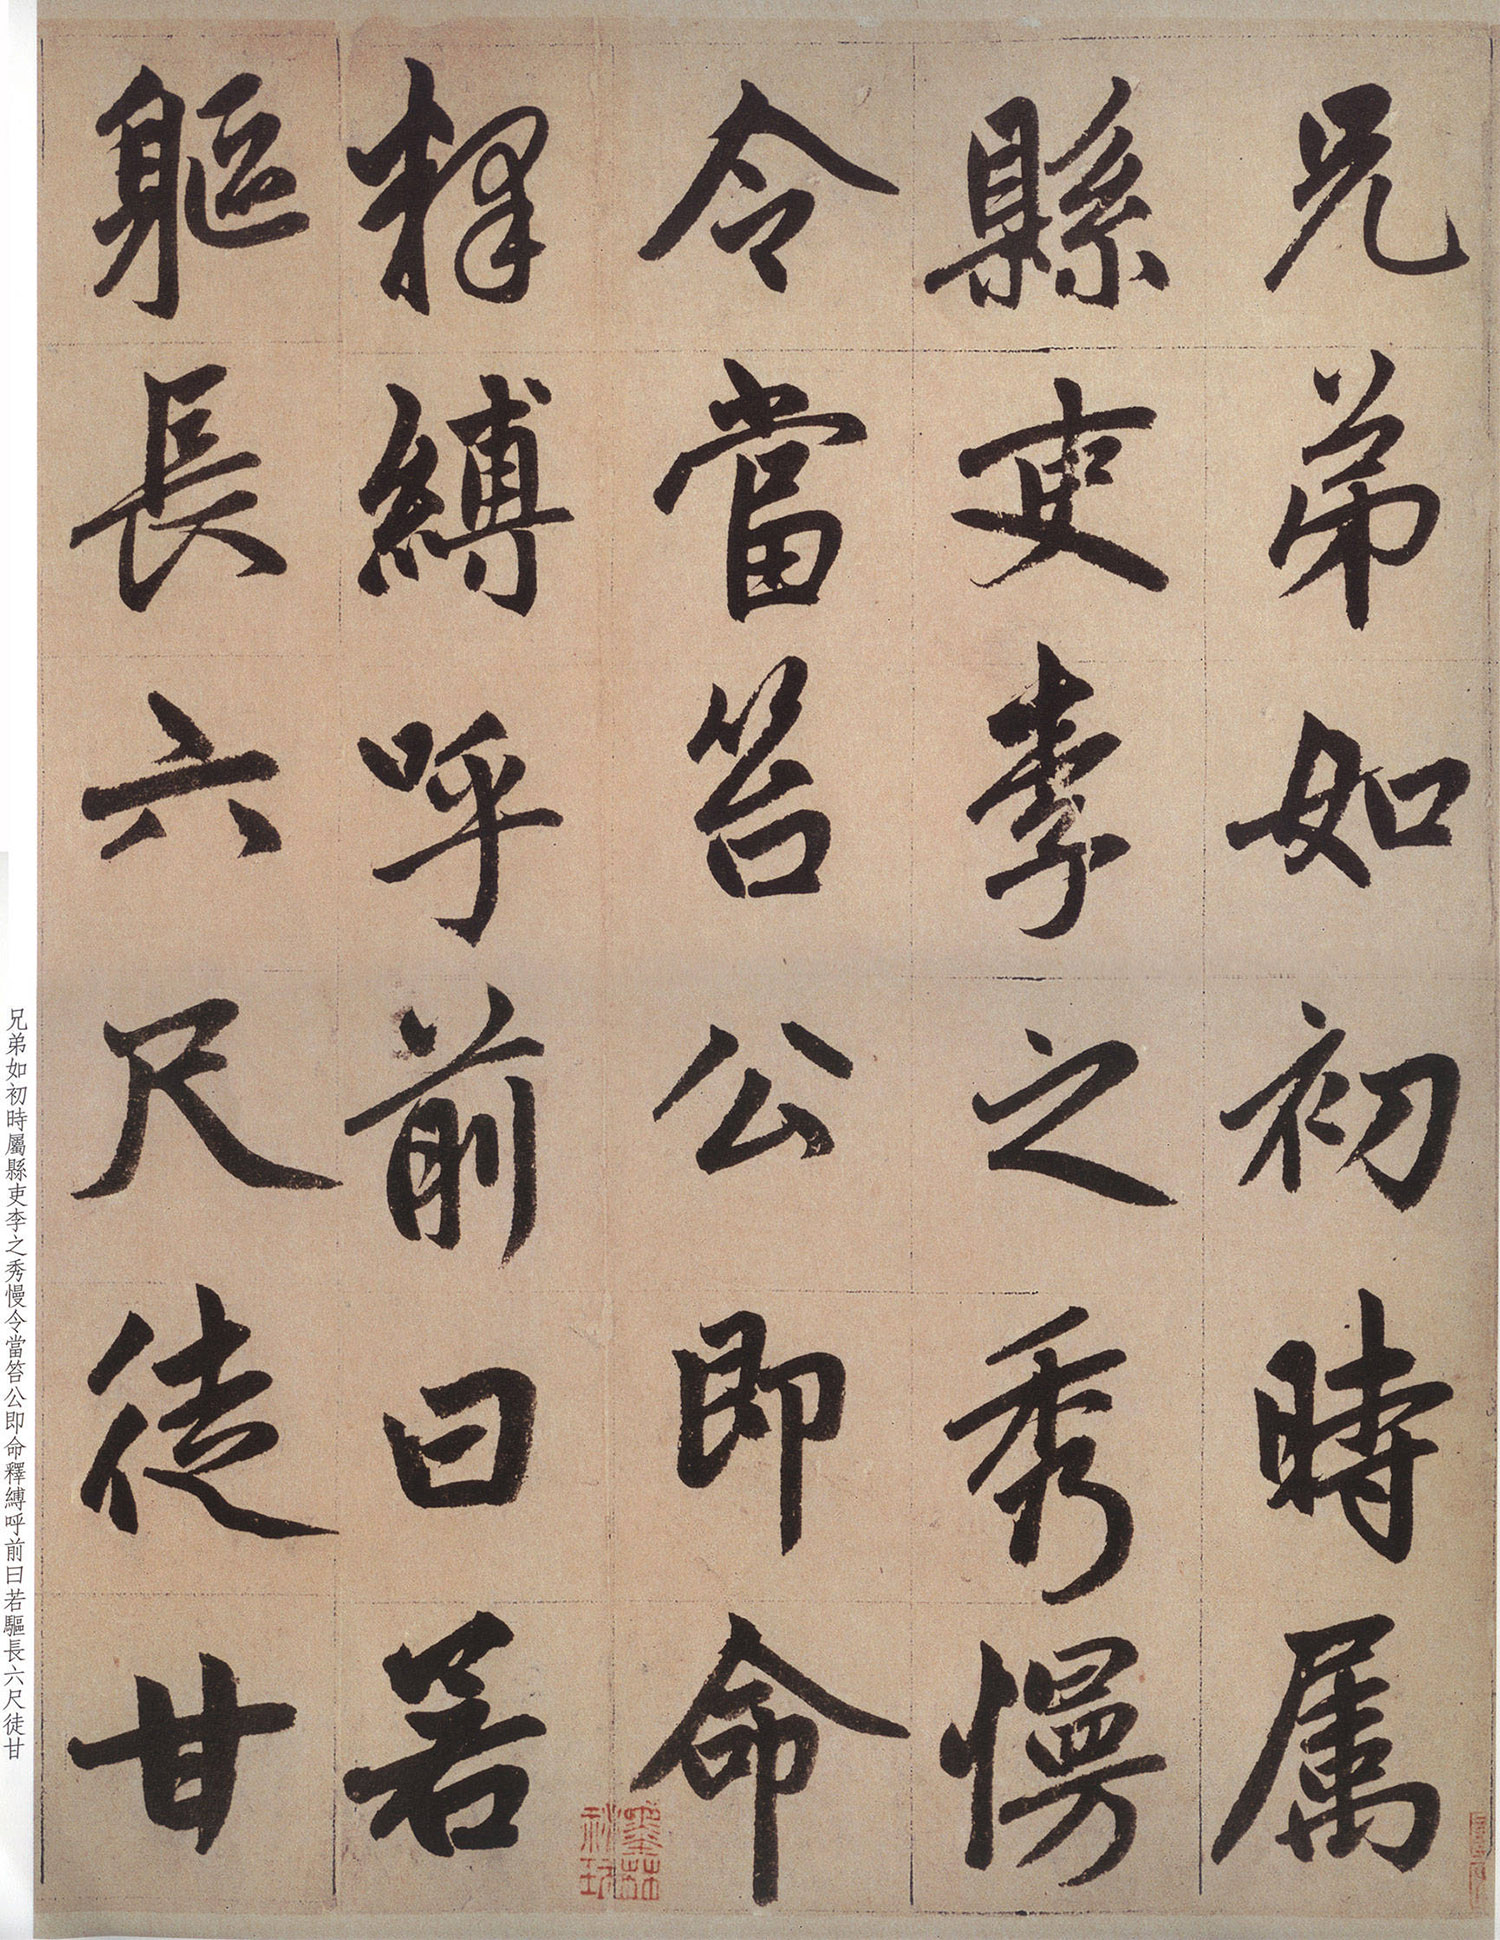 兄弟如初時属
縣吏李之秀慢
令當笞公即命
釋縛呼前曰若
軀長六尺徒甘
兄弟如初時屬縣吏李之秀慢令當笞公即命釋縛呼前曰若驅長六尺徒甘